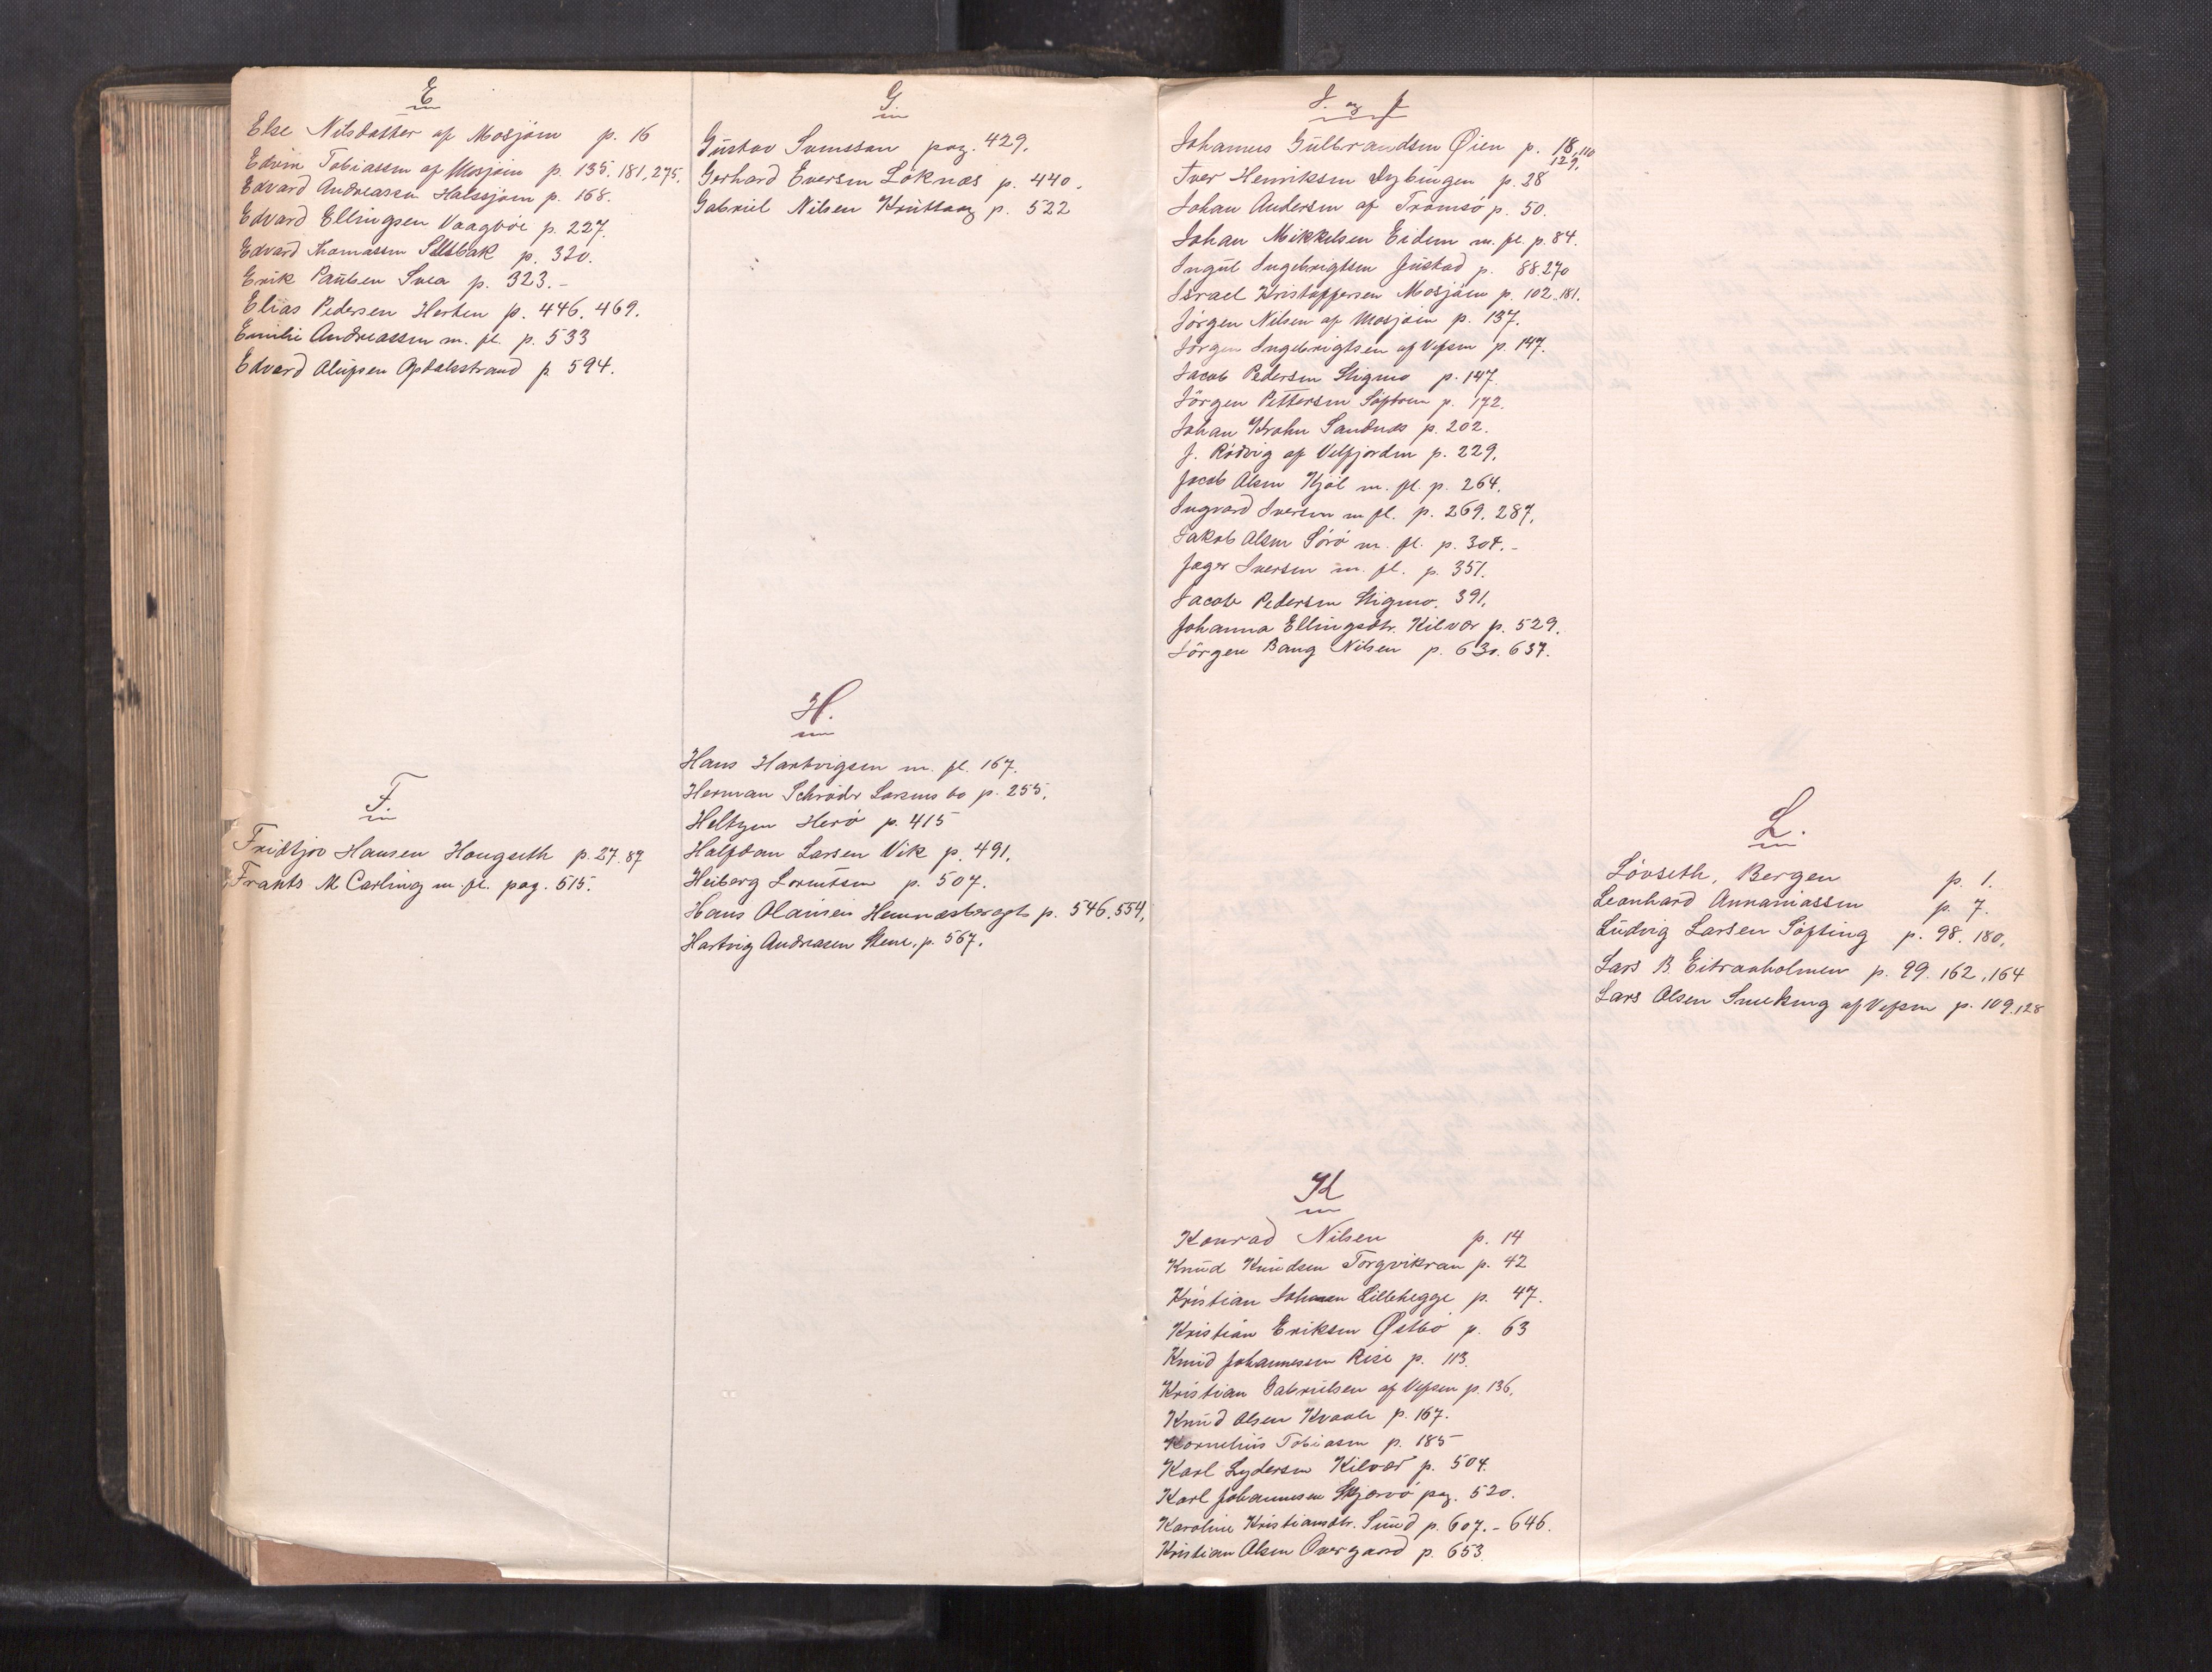 E
Else Nilsdatter af Mosjøen p. 16
Edvin Tobiassen af Mosjøen p. 135. 181, 275.
Edvard Andreassen Halssjøen p. 168.
Edvard Ellingsen Vaagbøi p. 227.
Edvard Thomassen p. 320.
Erik Paulsen Svea p. 323.-
Elias Pedersen Horten p. 446. 469.
Emilie Andreassen m. fl. p. 533
Edvard Olufsen Opdalsstrand p 594.
F.
Fridtjov Hansen Hougseth p. 27. 87
Frants M Carling m. fl. pag. 515.
G.
Gustav Svenssen pag. 429.
Gerhard Eversen Løknæs p. 440.
Gabriel Nilsen p. 522
H.
Hans Hartvigsen m. fl. 167.
Herman Schrøder Larsens bo p. 255.
Heltzen Herø p. 415
Halfdan Larsen Vik p. 491.
Heiberg Lorentsen p. 507.
Hans Olaisen Hemnæsberget p. 546, 554,
Hartvig Andreasen Stene, p. 567.
I. og J
Johannes Gulbrandsen Øien p. 18, 110
129.
Iver Henriksen Dybingen p. 28
Johan Andersen af Tromsø p. 50.
Johan Mikkelsen Eidem m. fl. p. 84.
Ingul Ingebrigtsen Justad p. 88. 270
Israel Kristoffersen Mosjøen p. 102. 181.
Jörgen Nilsen af Mosjøen p. 137.
Jörgen Ingebrigtsen af Vefsen p. 147.
Jacob Pedersen Stigmo p. 147.
Jörgen Pettersen p. 172.
Johan Krohn Sandnæs p. 202.
J. Rödvig af Velfjorden p. 229.
Jacob Olsen Kjöl m. fl. p. 264.
Ingvard Iversen m fl. p. 269. 287.
Jakob Olsen Sörö m. fl. p. 304.-
Jæger Iversen m. fl. p. 351.
Jacob Pedersen Stigmo. 391.
Johanna Ellingsdtr. Kilvær p. 529.
Jörgen Bang Nilsen p. 630. 637.
K
Konrad Nilsen p. 14
Knud Knudsen Torgvikran p. 42
Kristian Johansen Lillehegge p. 47.
Kristian Eriksen Østbö p. 63
Knud Johannesen Rise p. 113.
Kristian Gabrielsen af Vefsen p. 136.
Knud Olsen Kvaale p. 167.
Kornelius Tobiasen p. 185
Karl Lydersen Kilvær p. 504.
Karl Johannesen Skjærvö pag. 520.
Karoline Kristiansdtr. Sund p. 607. - 646.
Kristian Olsen Overgaard p. 653.
L.
Lövseth, Bergen p. 1.
Leonhard Annaniassen p. 7.
Ludvig Larsen Söfting p. 98. 180.
Lars B. Eitraaholmen p. 99. 162, 164
Lars Olsen af Vefsen p. 109. 128